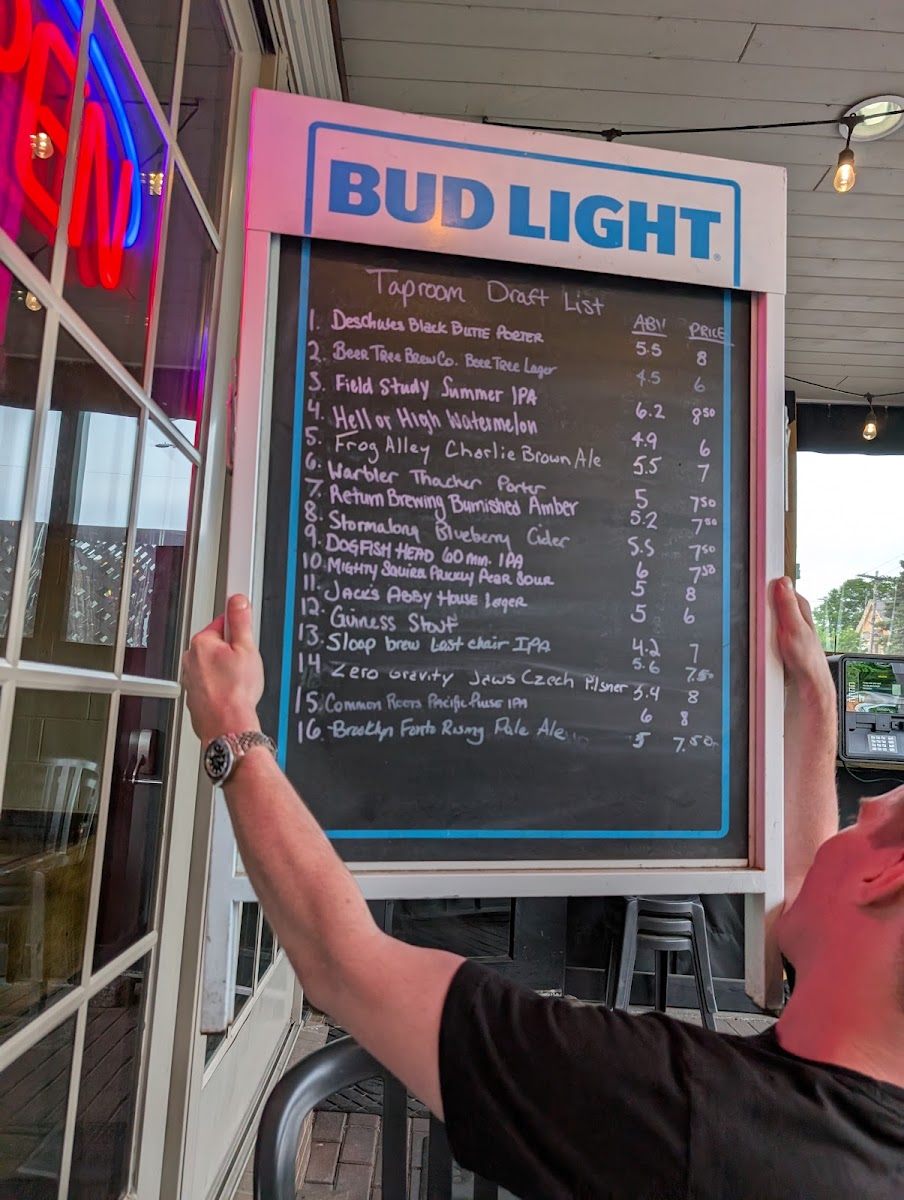 OPEN
BUD LIGHT
Taproom Draft List ABV PRICE
1. Deschutes Black Butte Porter 5.5 8
2. Beer Tree Brew Co. Beer Tree Lager 4.5 6
3. Field Study Summer IPA 6.2 8.50
4. Hell or High Watermelon 4.9 6
5. Frog Alley Charlie Brown Ale 5.5 7
6. Warbler Thacher Porter 5 7.50
7. Return Brewing Burnished Amber 5.2 7.50
8. Stormalong Blueberry Cider 5.5 7.50
9. DOGFISH HEAD 60 min. IPA 6 7.50
10. Mighty Squirrel Prickly Pear Sour 5 8
11. Jack's Abby House Lager 5 6
12. Guiness Stout 4.2 7
13. Sloop brew Last chair IPA 5.6 7.50
14 Zero Gravity Jaws Czech Pilsner 5.4 8
15. Common Roots Pacific IPA 6 8
16. Brooklyn Fonto Rising Pale Ale 5 7.50